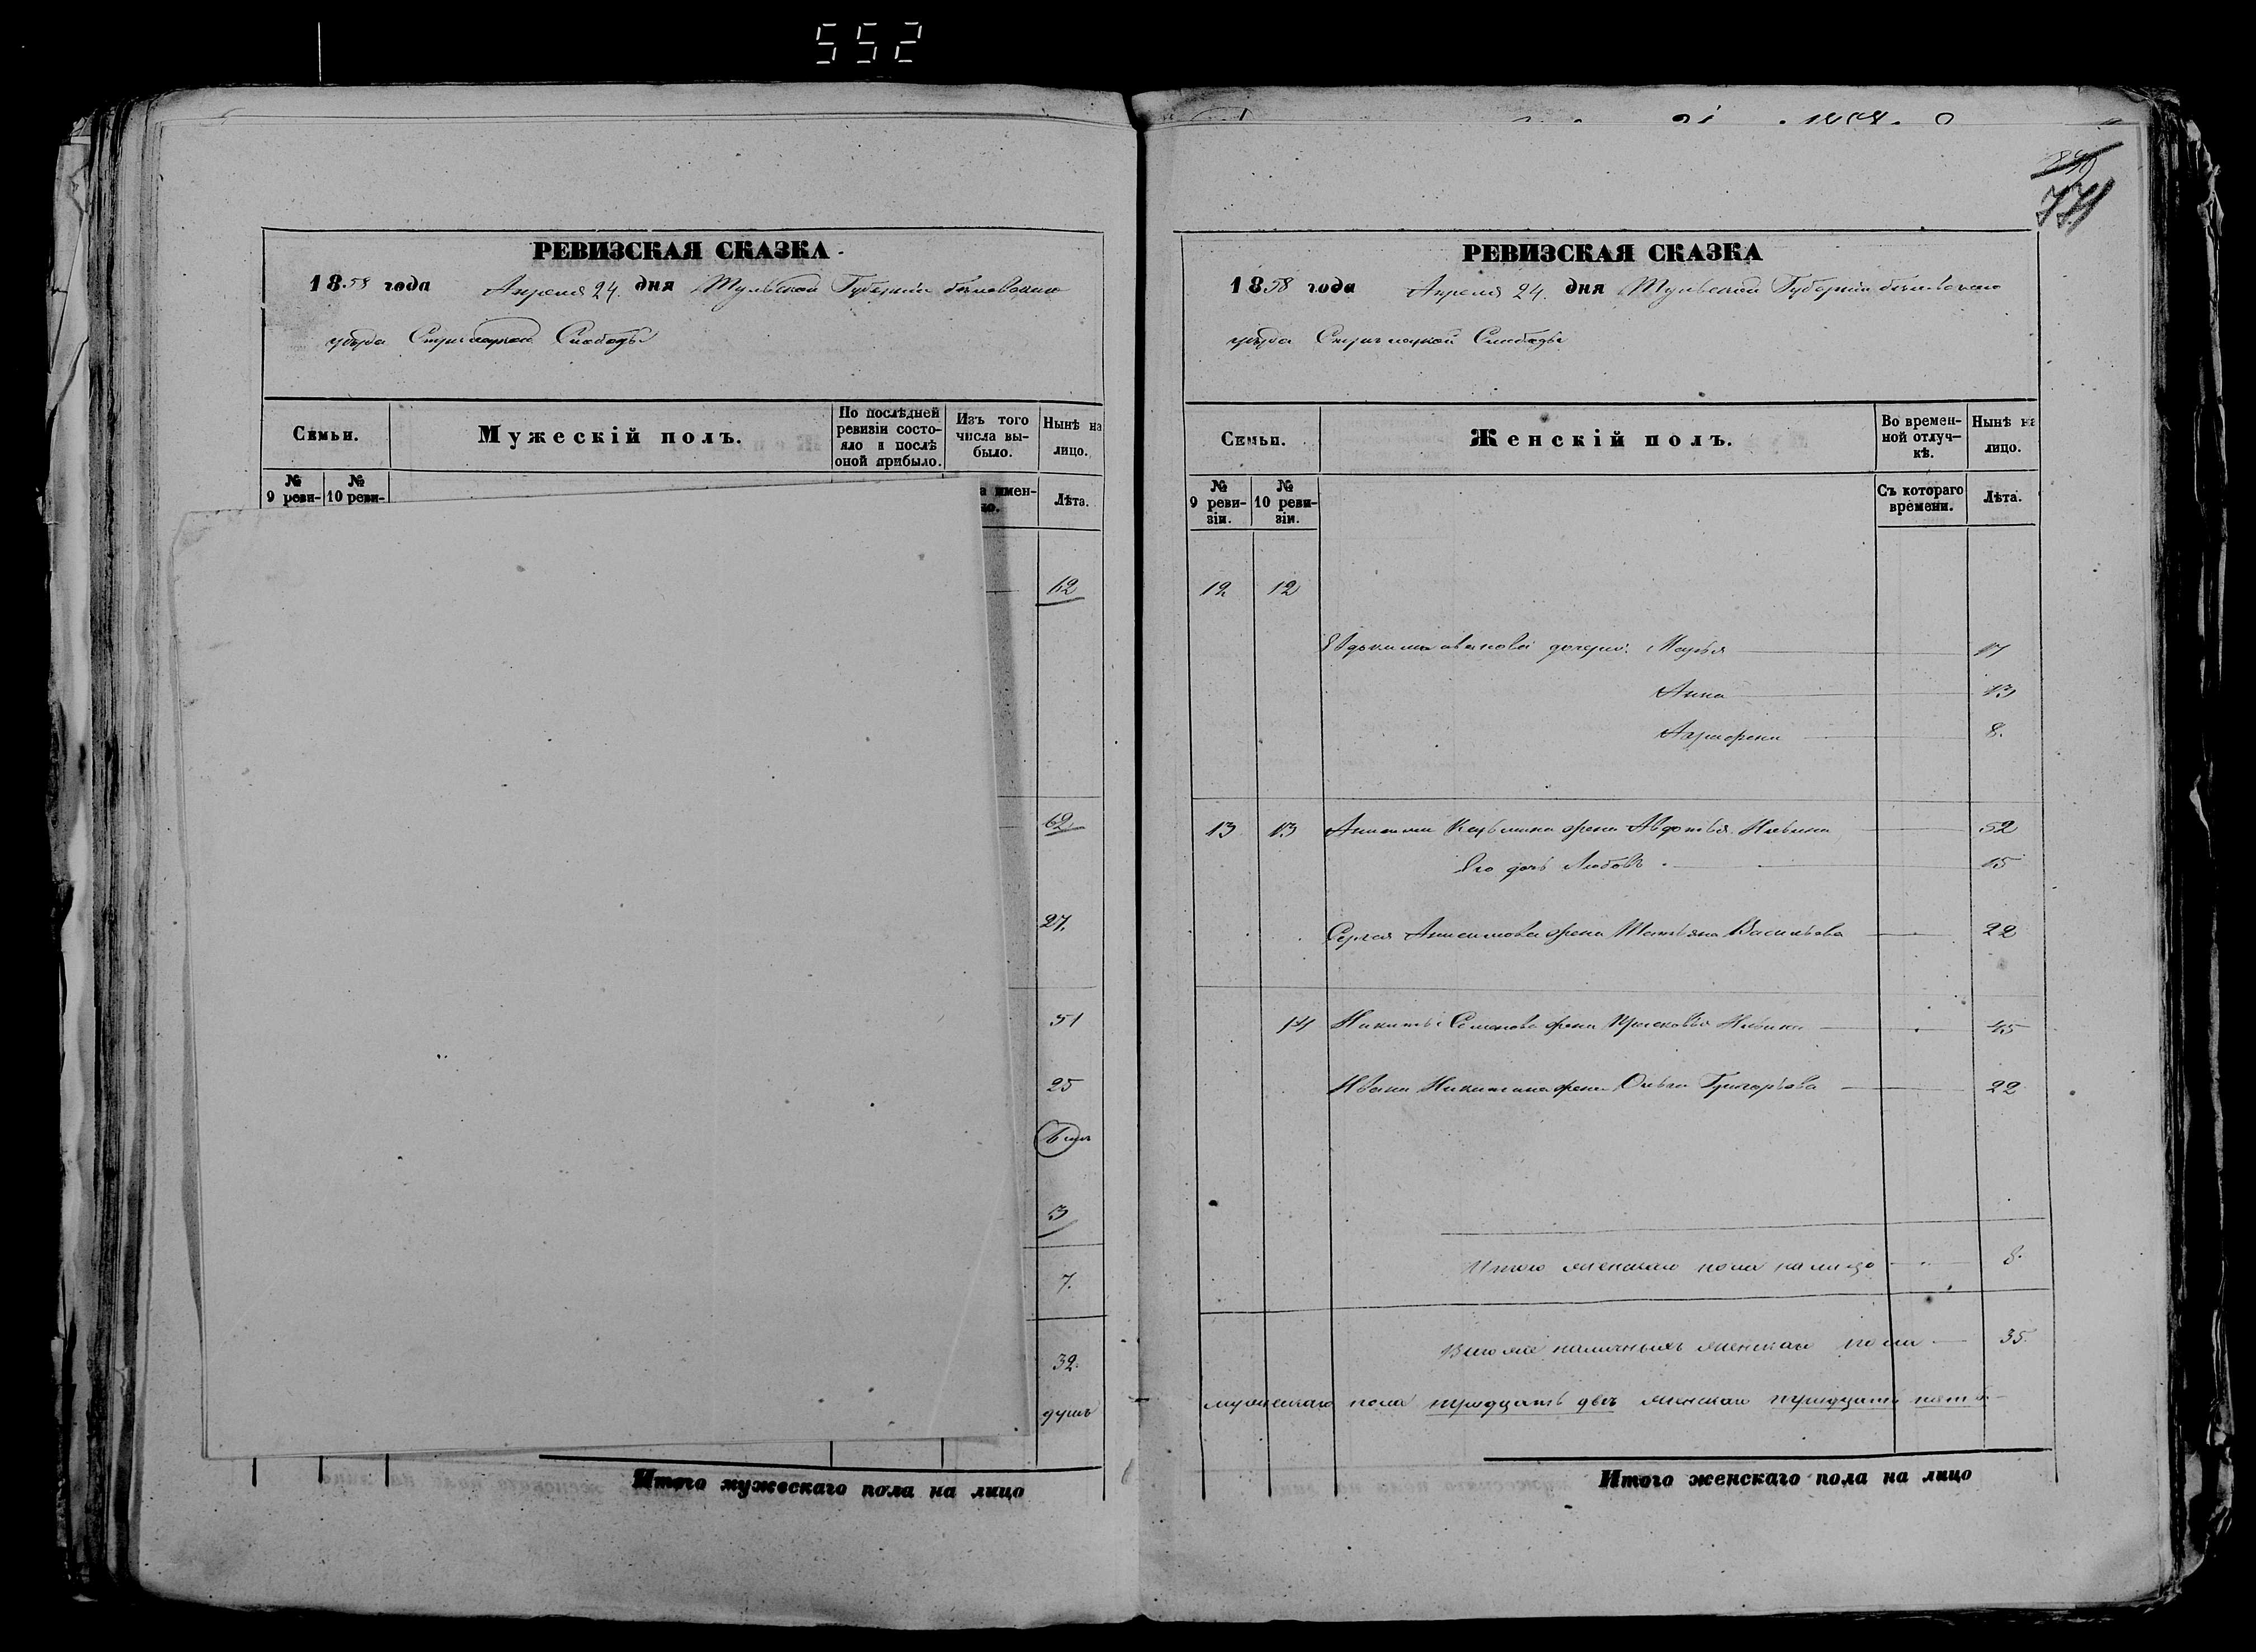 552
РЕВИЗСКАЯ СКАЗКА
1858 года Апреля 24. дня Тульской Губерніи Бѣлевскаго
уѣзда Слободы
Семьи.
Мужескій полъ.
По послѣдней ревизіи состояло и послѣ оной прибыло.
Изъ того числа выбыло.
Нынѣ на лицо.
№ 9 реви-
№ 10 реви-
а имен-
но.
Лѣта.
62
27.
51
25
3
7.
32.
душъ
Итого мужескаго пола на лицо
РЕВИЗСКАЯ СКАЗКА
1858 года Апреля 24. дня Тульской Губерніи Бѣлевскаго
уѣзда Слободы
Семьи.
Женскій полъ.
Во времен-
ной отлуч-
кѣ.
Нынѣ на
лицо.
№ 9 реви-
зіи.
№ 10 реви-
зіи.
Съ котораго
времени.
Лѣта.
12 12
дочери: Марья 17
Анна 13
Аграфена 8.
13 13 Анисима Кузьмина жена Авдотья 52
Его дочь Любовь 15
Сергея Анисимова жена Татьяна Васильева 22
14 Никиты Семенова жена Прасковья 45
Ивана Никитина жена Ольга Григорьева 22
Итого женскаго пола на лицо 8.
Всего же наличныхъ женскаго пола 35.
мужескаго пола тридцать два женскаго тридцать пять
Итого женскаго пола на лицо